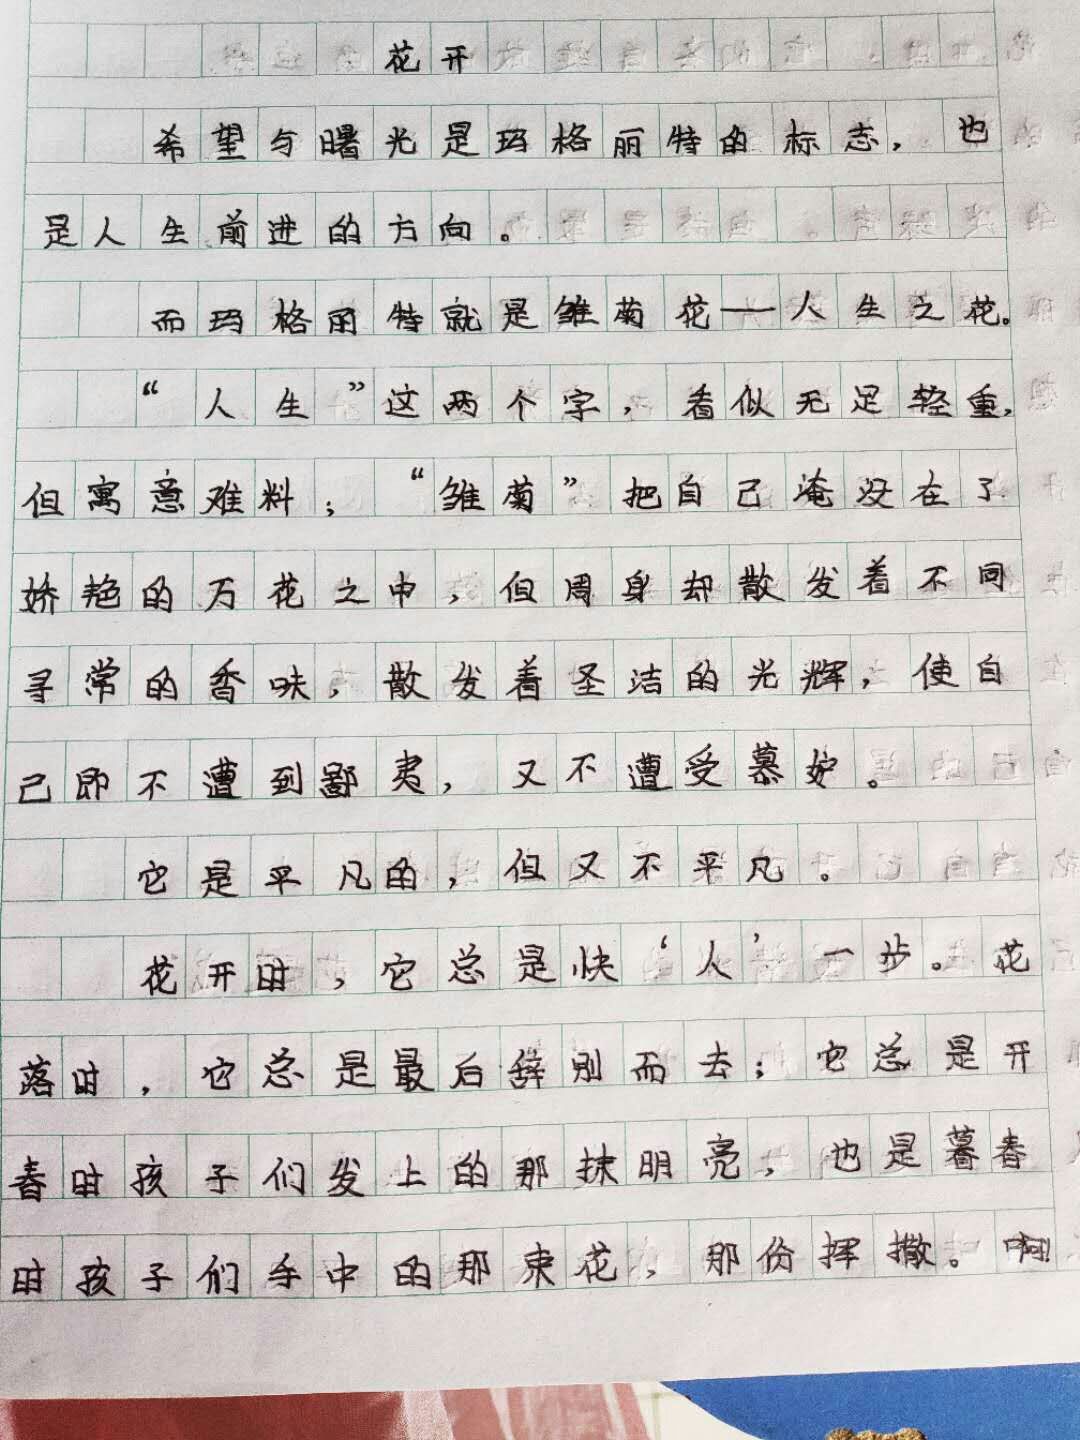 花开
希望与曙光是玛格丽特的标志，也
是人生前进的方向。
而玛格丽特就是雏菊花——人生之花。
“人生”这两个字，看似无足轻重，
但寓意难料；“雏菊”把自己淹没在了
娇艳的万花之中，但周身却散发着不同
寻常的香味，散发着圣洁的光辉，使自
己即不遭到鄙夷，又不遭受慕妒。
它是平凡的，但又不平凡。
花开时，它总是快‘人’一步。花
落时，它总是最后辞别而去；它总是开
春时孩子们发上的那抹明亮，也是暮春
时孩子们手中的那束花，那份挥撒。啊！